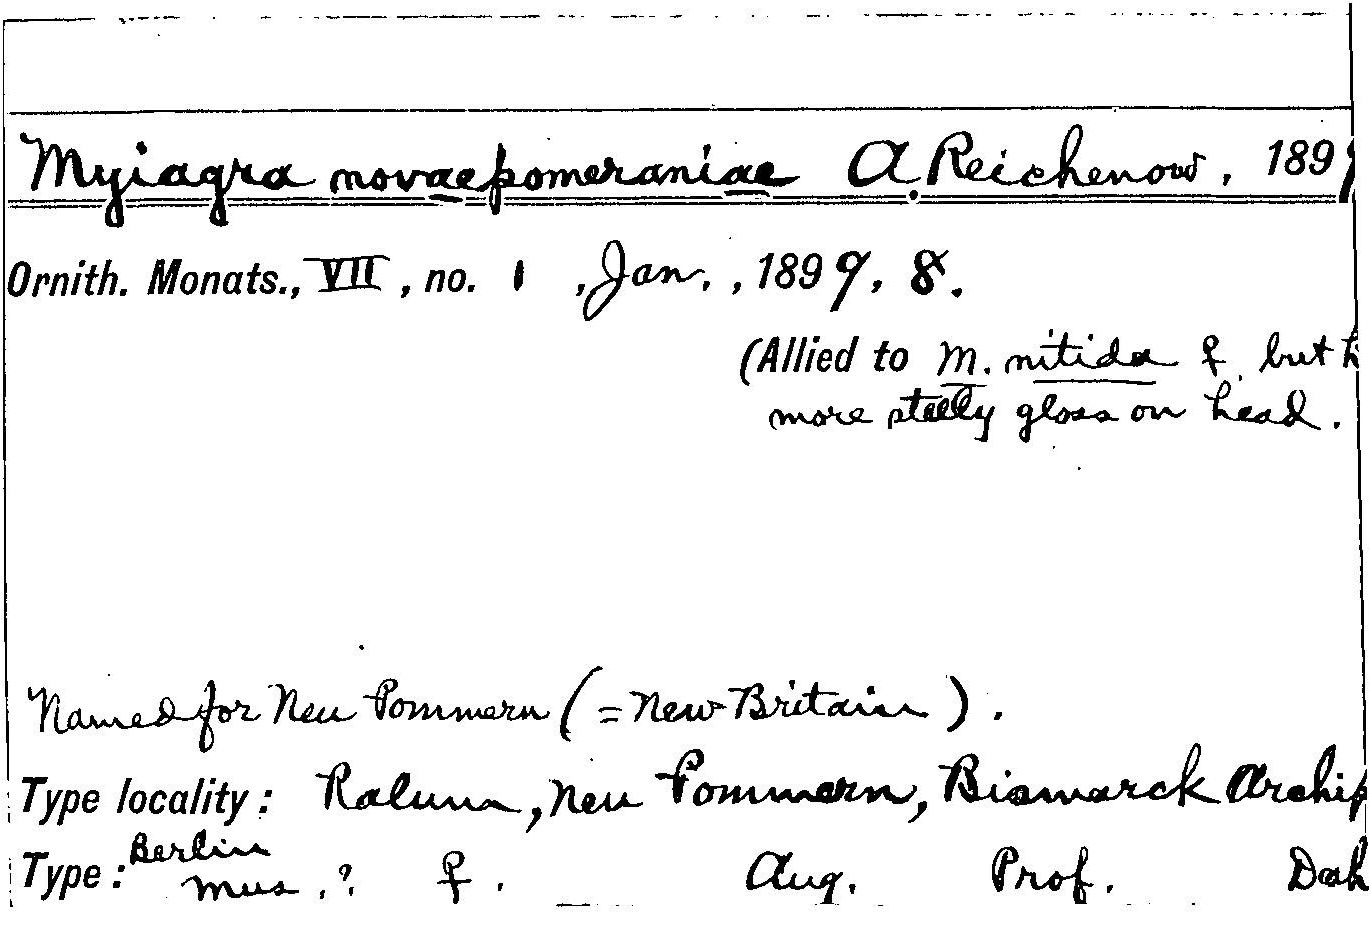 Myiagra novaepomeraniae A. Reichenow, 189
Ornith. Monats., VII, no. 1, Jan., 1899, 8.
(Allied to M. nitida ♀ but
more steely gloss on head.
Named for Neu Pommern (= New Britain).
Type locality: Raluna, Neu Pommern, Bismarck Archip
Type: Berlin Mus. ? ♀. Aug. Prof. Dah